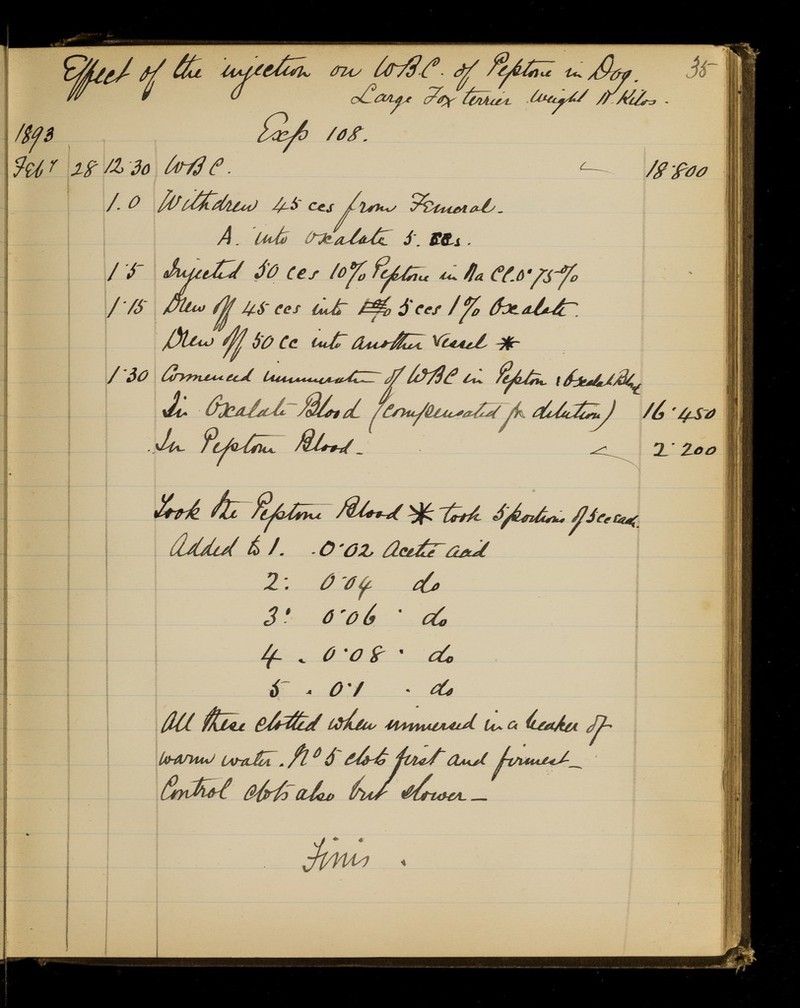 Effect of the injection on WBC. of Peptone in Dog. 35
Large Fox terrier weight Kilos.
1893 Exp 108.
Feby 28 12·30 WBC. 18·800
1.0 Withdrew 45 ccs from Femoral.
A. into oxalate 5. ccs.
1·5 Injected 50 ccs 10% Peptone in Na Cl. 0·75%
1·15 Drew off 45 ccs into 1% 5 ccs 1% Oxalate.
Drew off 50 cc into another vessel *
1·30 Commenced innumeration of WBC in Pepton & Oxalate Blood
In Oxalate Blood (compensated for dilution) 16·450
In Peptone Blood_ 2·200
Took the Peptone Blood * took 5 portions of 5cc each.
Added to 1. 0·02 Acetic acid
2. 0·04 do
3. 0·06 " do
4 " 0·08 " do
5 " 0·1 " do
All these clotted when immersed in a beaker of
warm water. No 5 clots first and firmest_
Control clots also but slower_
Finis.